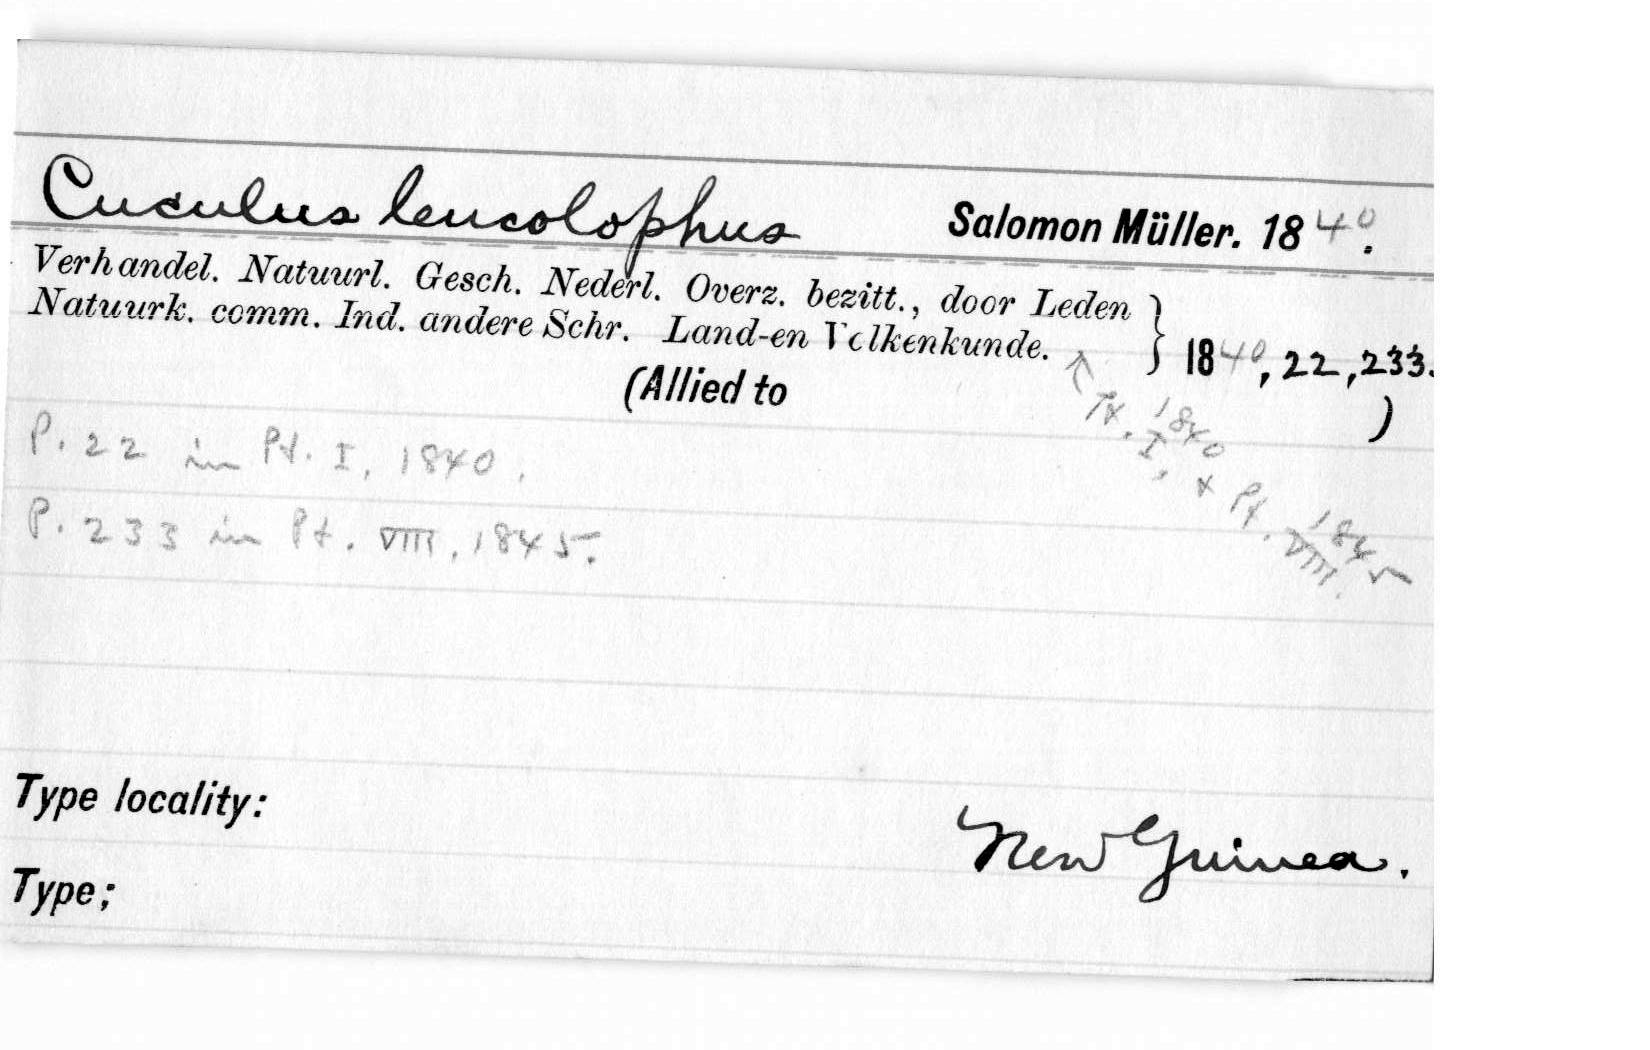 Cuculus leucolophus Salomon Müller. 1840.
Verhandel. Natuurl. Gesch. Nederl. Overz. bezitt., door Leden
Natuurk. comm. Ind. andere Schr. Land-en Volkenkunde. } 1840, 22, 233.
(Allied to )
↑ Pt. I, 1840 & Pt. VIII. 1845
P. 22 in Pt. I, 1840.
P. 233 in Pt. VIII, 1845.
Type locality: New Guinea.
Type;